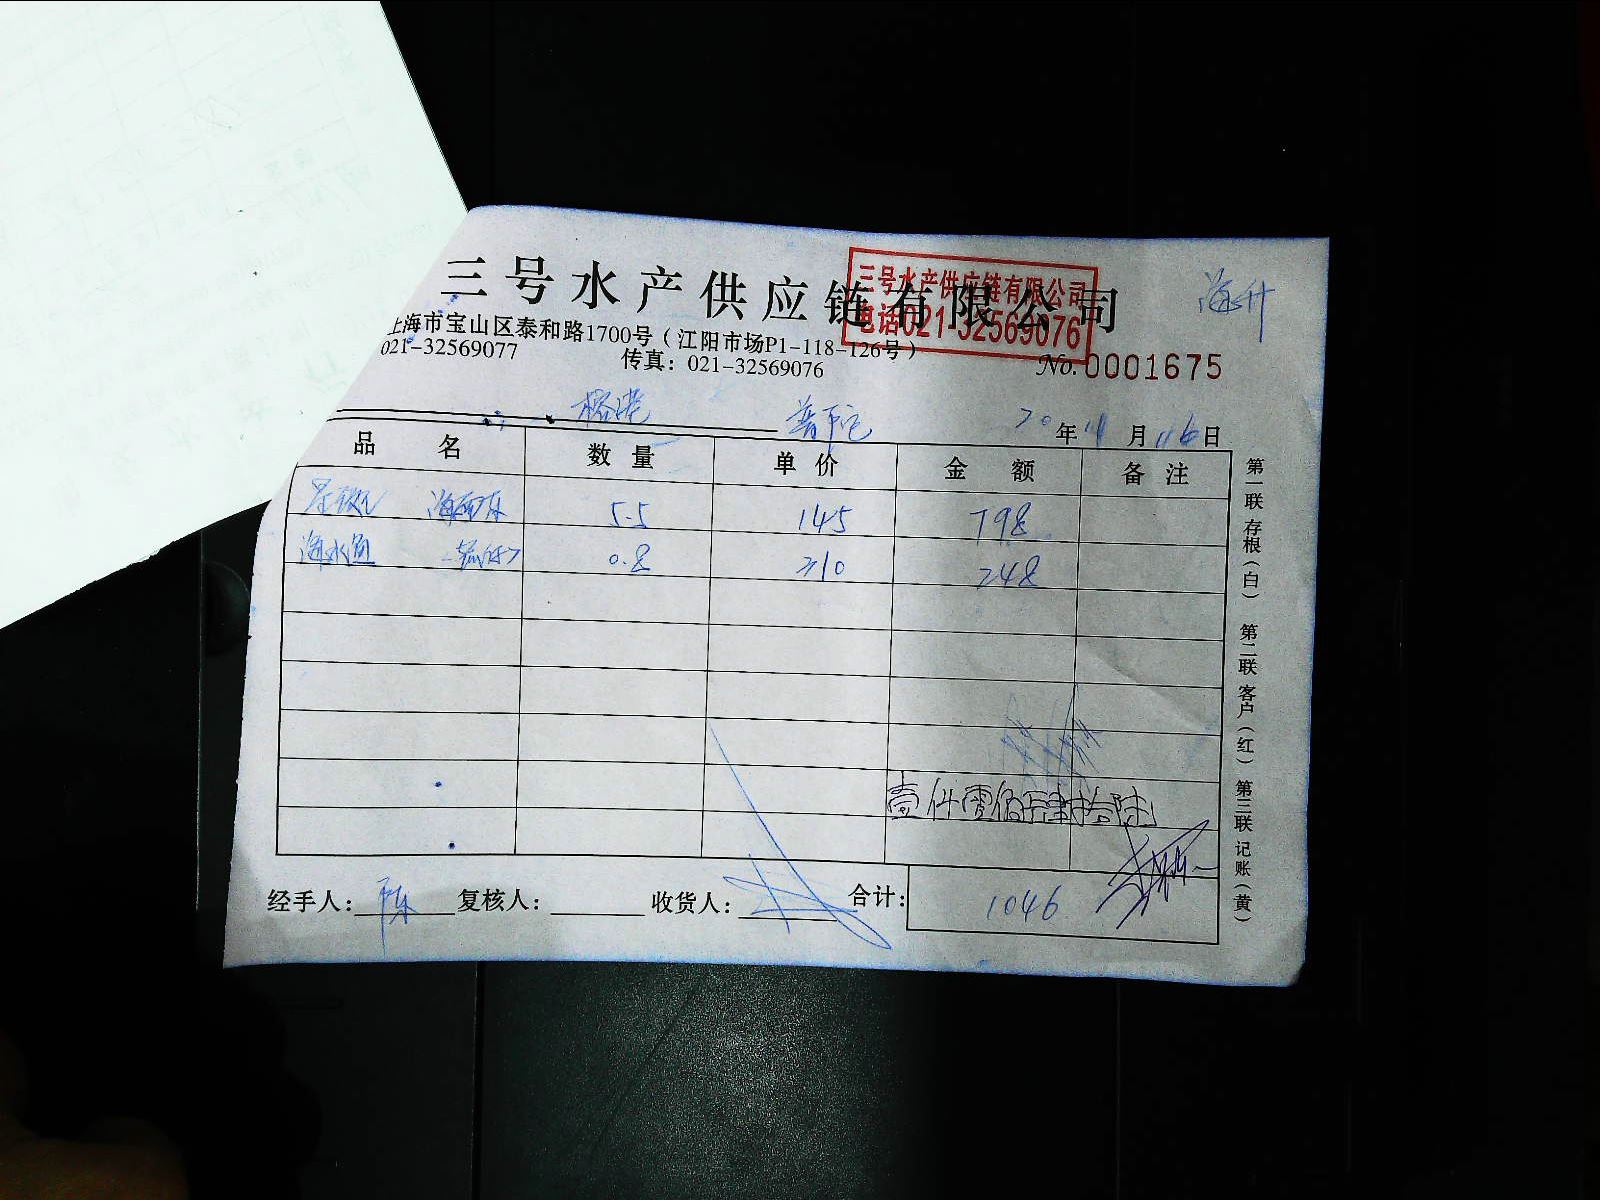 三号水产供应链有限公司
三号水产供应链有限公司
电话021-32569076
海升
上海市宝山区泰和路1700号（江阳市场P1-118-126号）
021-32569077 传真：021-32569076
No.0001675
普陀 20年11月16日
品名 数量 单价 金额 备注
5.5 145 798
0.8 310 248
壹仟零佰肆拾陆
经手人：陈 复核人： 收货人： 合计：1046
第一联 存根（白） 第二联 客户（红） 第三联 记账（黄）